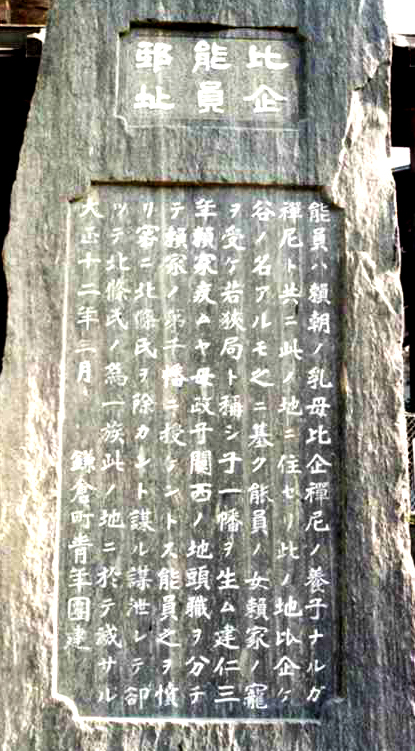 比企
能員
邸址
能員ハ頼朝ノ乳母比企禪尼ノ養子ナルガ
禪尼ト共ニ此ノ地ニ住セリ此ノ地比企ケ
谷ノ名アルモ之ニ基ク能員ノ女頼家ノ寵
ヲ受ケ若狹局ト稱シ子一幡ヲ生ム建仁三
年頼家疾ムヤ母政子關西ノ地頭職ヲ分チ
テ頼家ノ弟千幡ニ授ケントス能員之ヲ憤
リ窃ニ北條氏ヲ除カント謀ル謀泄レテ却
ツテ北條氏ノ為一族此ノ地ニ於テ滅サル
大正十二年三月 鎌倉町青年團建